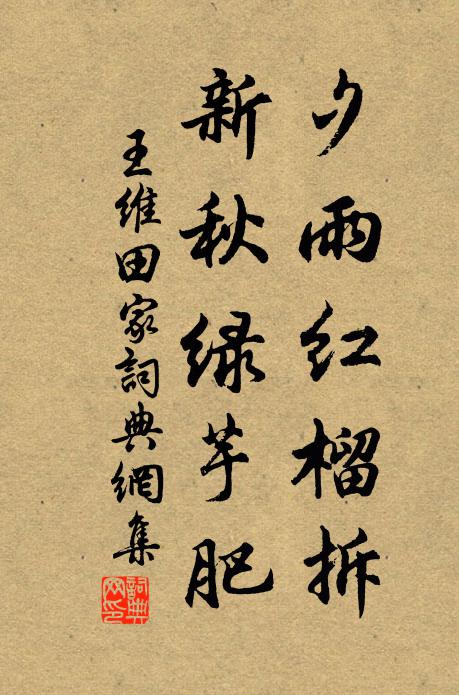 夕雨红榴拆
新秋绿芋肥
王维田家詞典網集
詞典網印